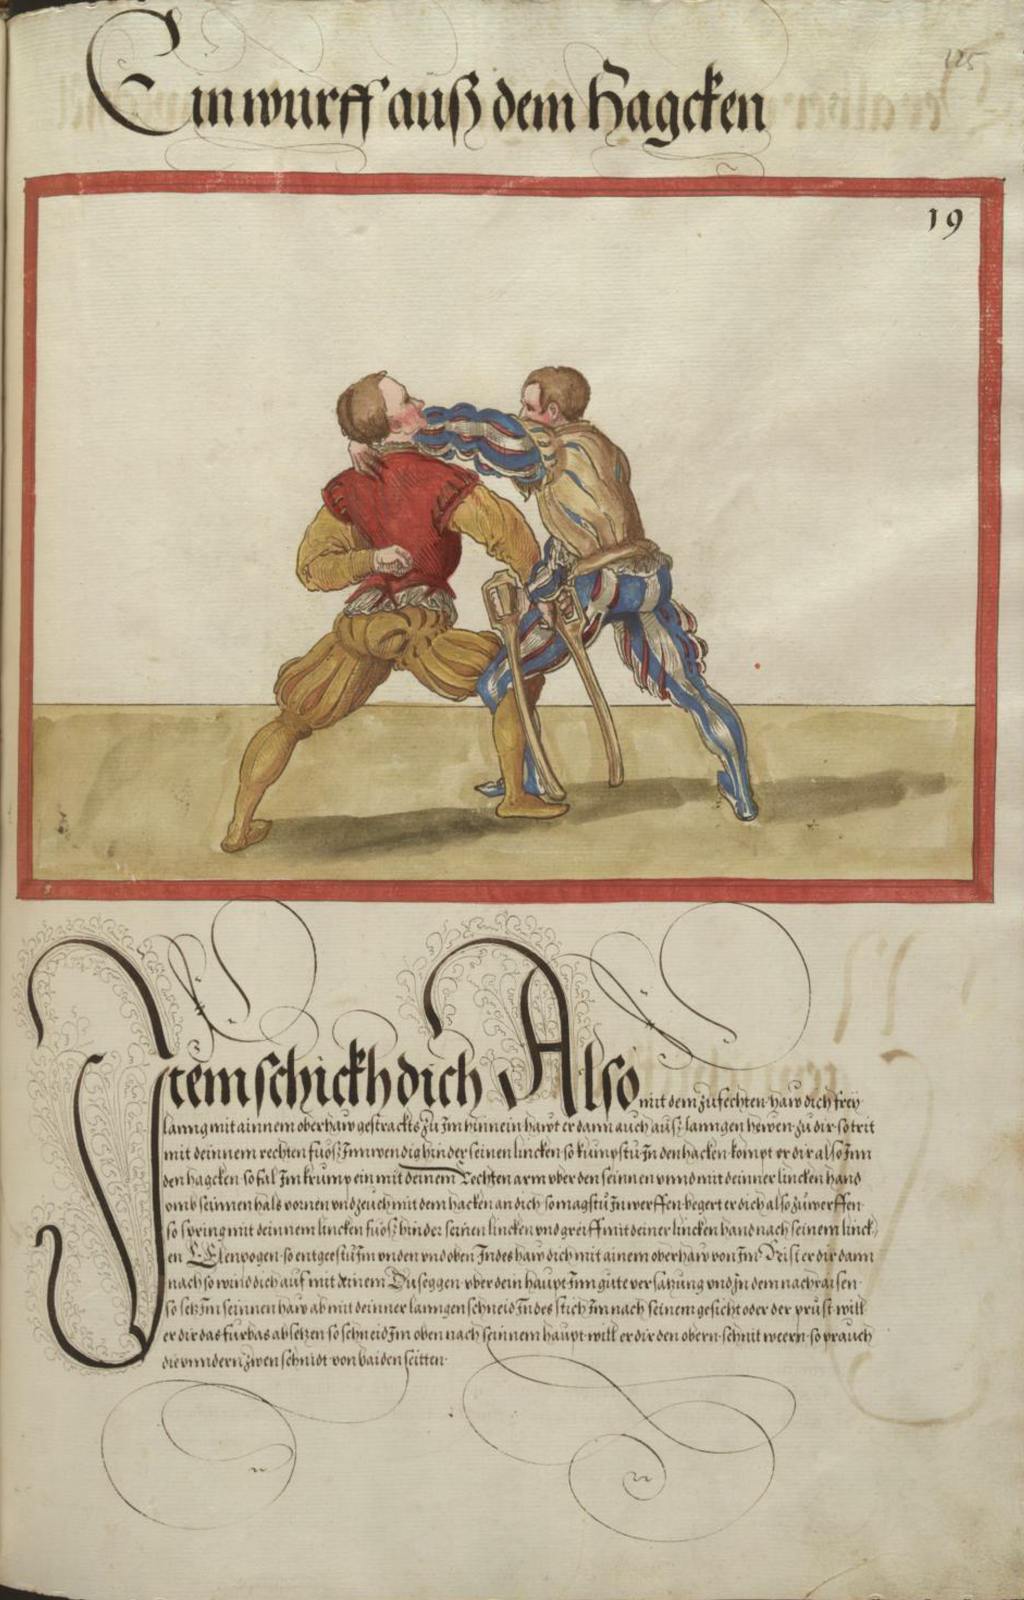 125
Ein wurff auß dem Hagcken
19
Item schickh dich Also mit dem zufechten haw dich frey
lanng mit ainnem oberhaw gestrackts zu Im hinnein hawt er dann auch auß lanngen hewen zu dir so trit
mit deinnem rechten fuoß Innwendig hinder seinen lincken so kumpstu In den hacken kompt er dir also Inn
den hagcken so fal Im krump ein mit deinem Rechten arm vber den seinnen vnnd mit deinner lincken hand
vmb seinnen hals vornen vnd zeuch mit dem hacken an dich so magstu In werffen begert er dich also zu werffen
so spring mit deinnem lincken fuosz hinder seinen lincken vnd greiff mit deiner lincken hand nach seinem linck
en Elenpogen so entgestu Im vnden vnd oben Indes haw dich mit ainem oberhaw von Im Reist er dir dann
nach so wind dich auf mit deinem Duseggen vber dein haupt Inn gute versatzung vnd In dem nachraisen
so setz Im seinnen haw ab mit deinner lanngen schneid Indes stich Im nach seinem gesicht oder der prust will
er dir das furbas absetzen so schneid Im oben nach seinnem haupt will er dir den obern schnit weern so prauch
die vnndern zwen schnidt von baiden seitten